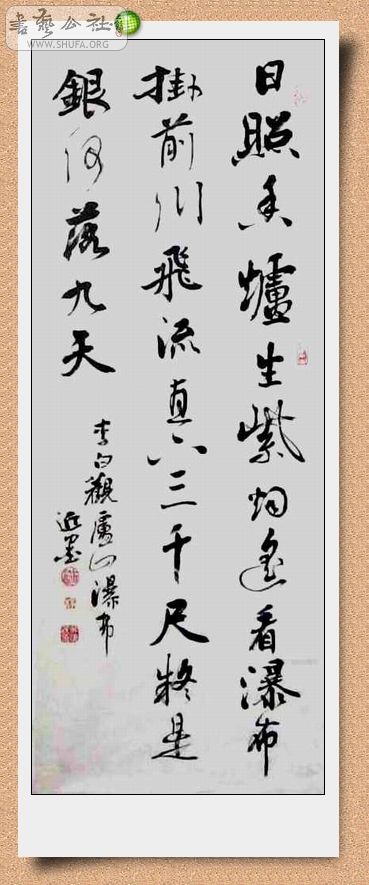 書藝公社
WWW.SHUFA.ORG
日照香爐生紫烟遙看瀑布
掛前川飛流直下三千尺疑是
銀河落九天
李白觀廬山瀑布
近墨